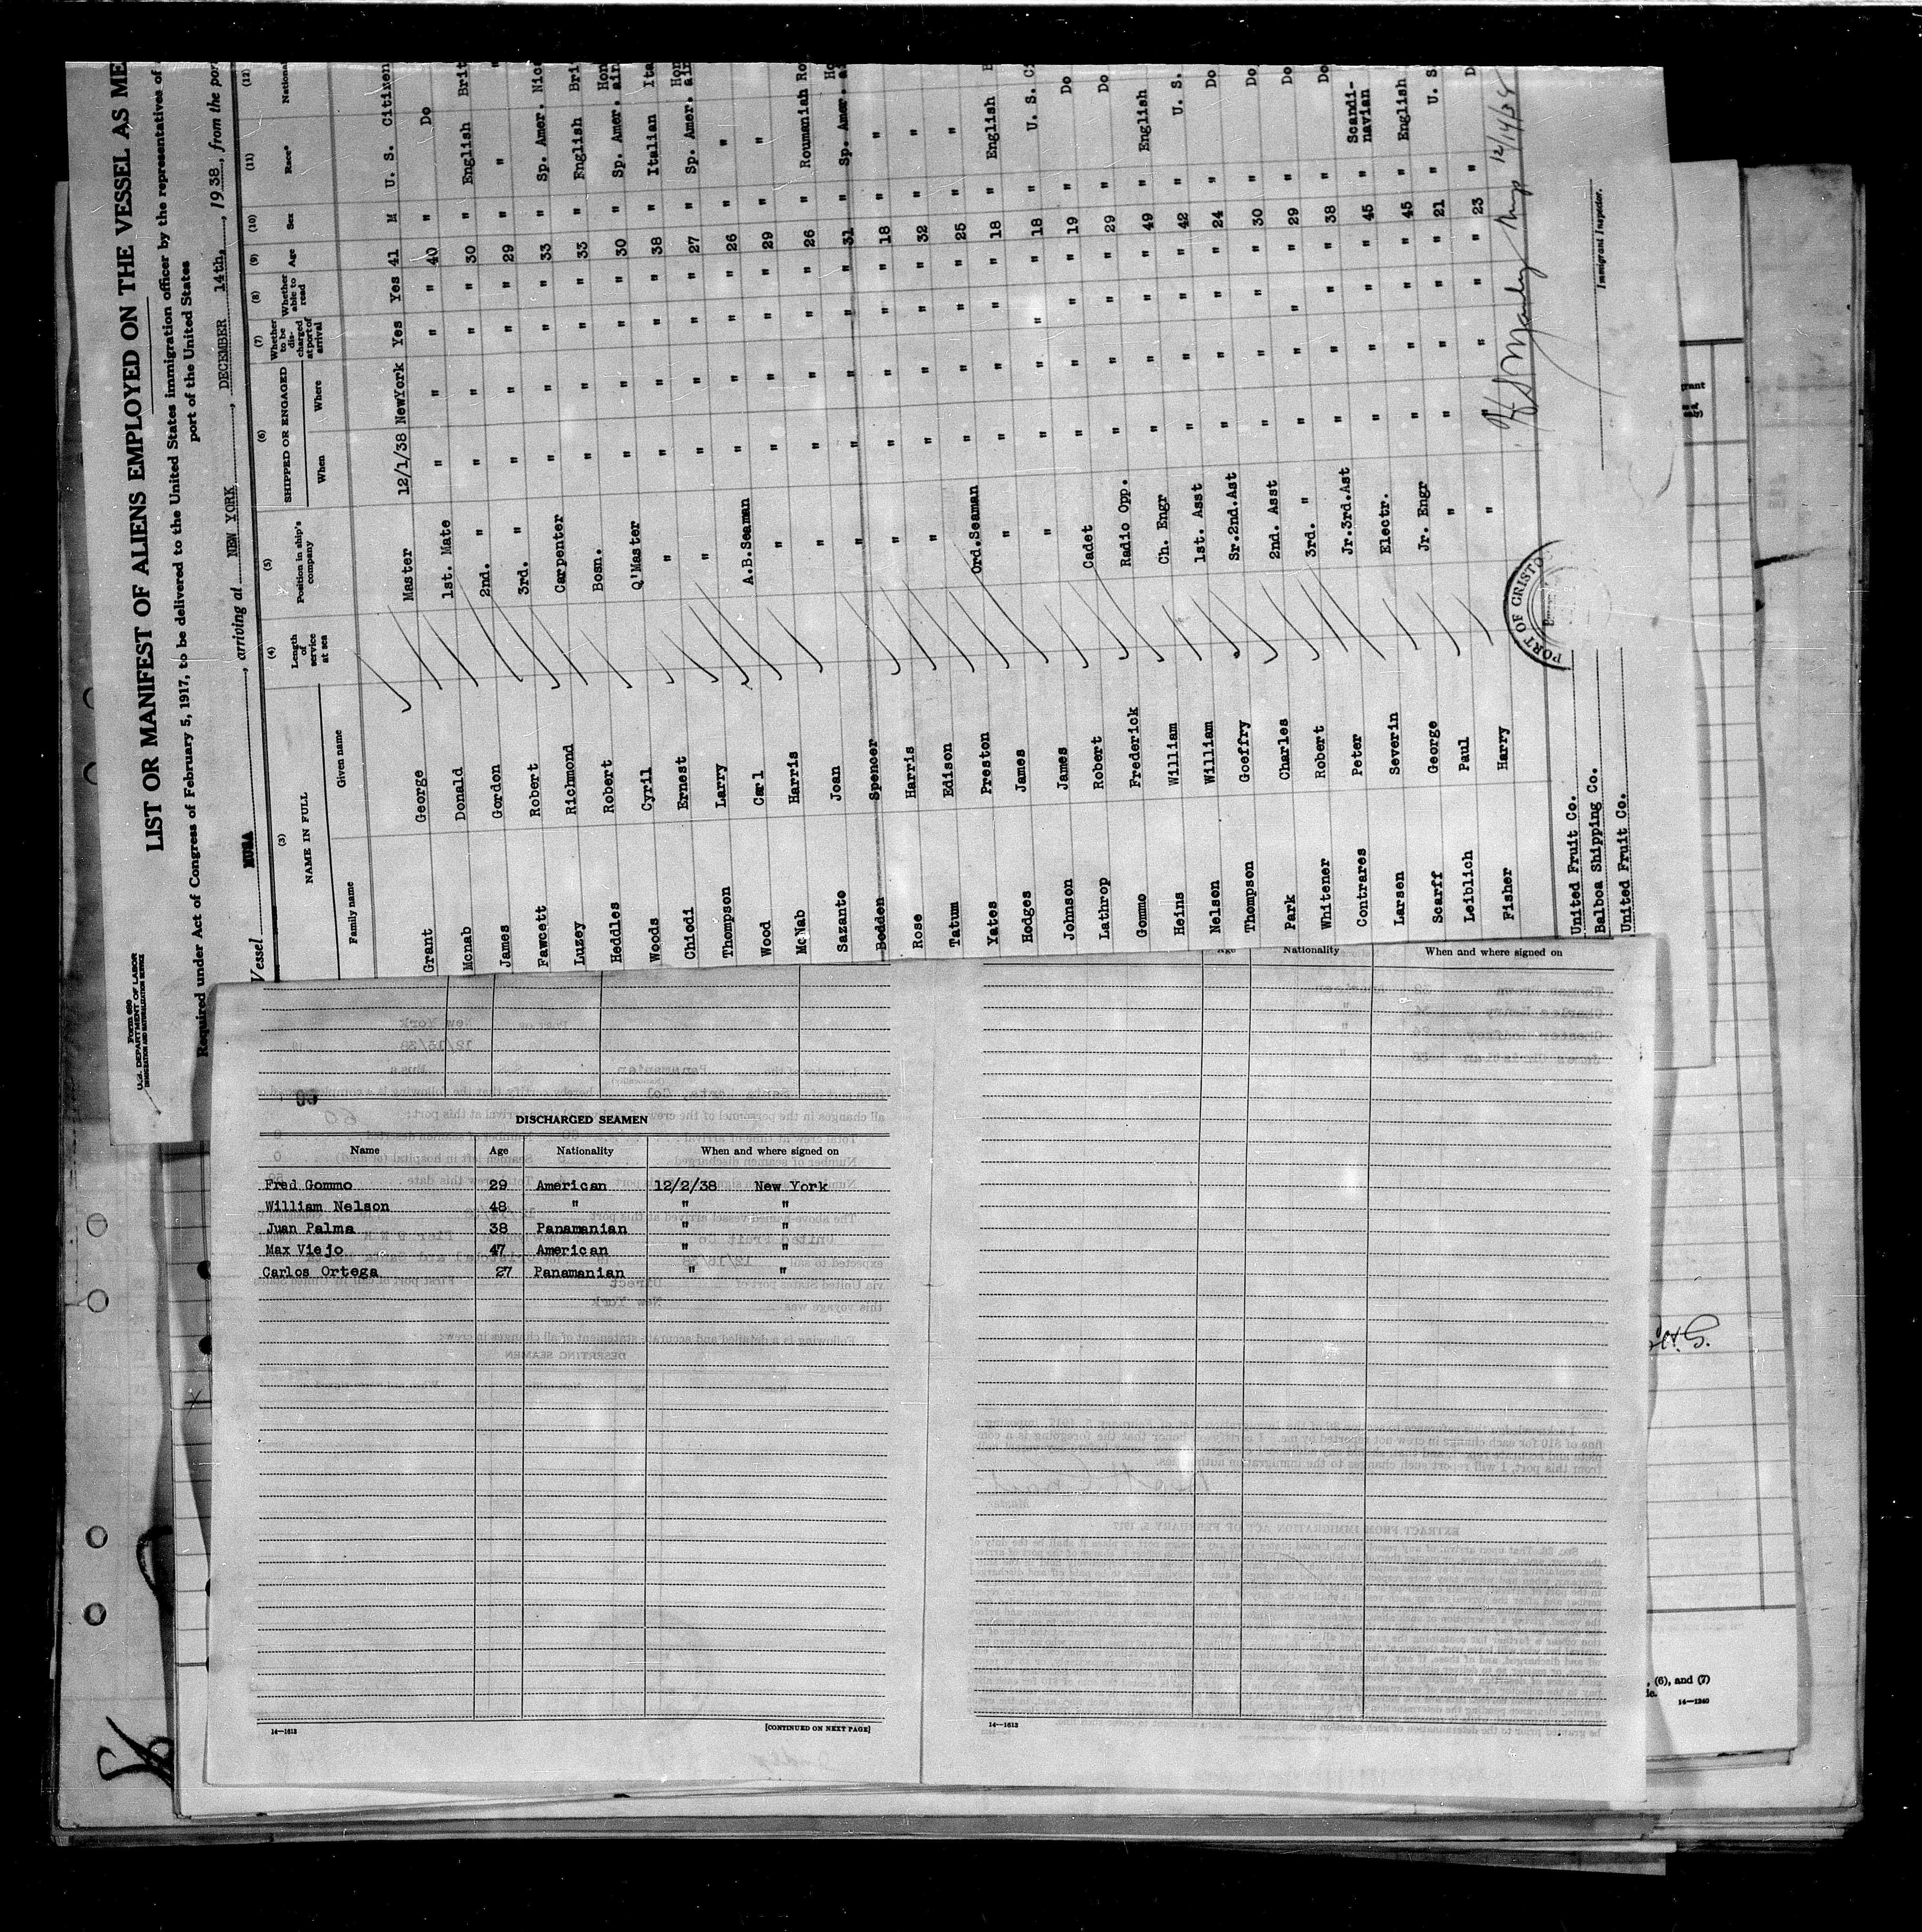 Form 680
U.S. DEPARTMENT OF LABOR
IMMIGRATION AND NATURALIZATION SERVICE
LIST OR MANIFEST OF ALIENS EMPLOYED ON THE VESSEL AS ME
Required under Act of Congress of February 5, 1917, to be delivered to the United States immigration officer by the representatives of
port of the United States
Vessel MUSA, arriving at NEW YORK, DECEMBER 14th, 1938, from the por
(3) (4) (5) (6) (7) (8) (9) (10) (11) (12)
NAME IN FULL Length of service at sea Position in ship's company SHIPPED OR ENGAGED Whether to be discharged at port of arrival Whether able to read Age Sex Race* National
Family name Given name When Where
Grant George Master 12/1/38 NewYork Yes Yes 41 M U. S. Citizen
Mcnab Donald 1st. Mate " " " " 40 " Do
James Gordon 2nd. " " " " " 30 " English Brit
Fawcett Robert 3rd. " " " " " 29 " " "
Luzey Richmond Carpenter " " " " 33 " Sp. Amer. Nic
Heddles Robert Bosn. " " " " 33 " English Bri
Woods Cyril Q'Master " " " " 30 " Sp. Amer. Hon
Chiodi Ernest " " " " " 38 " Italian Ita
Thompson Larry " " " " " 27 " Sp. Amer. Hon
Wood Carl A.B.Seaman " " " " 26 " "
McNab Harris " " " " " 29 " "
Sazante Joan " " " " " 26 " Roumanian Ro
Bodden Spencer " " " " " 31 " Sp. Amer. Ho
Rose Harris " " " " " 18 " "
Tatum Edison " " " " " 32 " "
Yates Preston Ord.Seaman " " " " 25 " "
Hodges James " " " " " 18 " English B
Johnson James " " " " " 18 " U. S. Ci
Lathrop Robert Cadet " " " " 19 " Do
Gommo Frederick Radio Opp. " " " " 29 " Do
Heins William Ch. Engr " " " " 49 " English
Nelsen William 1st. Asst " " " " 42 " U. S.
Thompson Goeffry Sr.2nd.Ast " " " " 24 " Do
Park Charles 2nd. Asst " " " " 30 " Do
Whitener Robert 3rd. " " " " " 29 " Do
Contrares Peter Jr.3rd.Ast " " " " 38 " Do
Larsen Severin Electr. " " " " 45 " Scandi-navian
Scarff George Jr. Engr " " " " 45 " English
Leiblich Paul " " " " " 21 " U. S.
Fisher Harry " " " " " 23 " D
12/14/38
United Fruit Co.
Balboa Shipping Co.
United Fruit Co.
PORT OF CRISTO
Immigrant Inspector.
DISCHARGED SEAMEN
Name Age Nationality When and where signed on
Fred Gommo 29 American 12/2/38 New York
William Nelson 48 " " "
Juan Palma 38 Panamanian " "
Max Viejo 47 American " "
Carlos Ortega 27 Panamanian " "
14—1613 [CONTINUED ON NEXT PAGE]
Age Nationality When and where signed on
14—1613
, (6), and (7)
14—1240